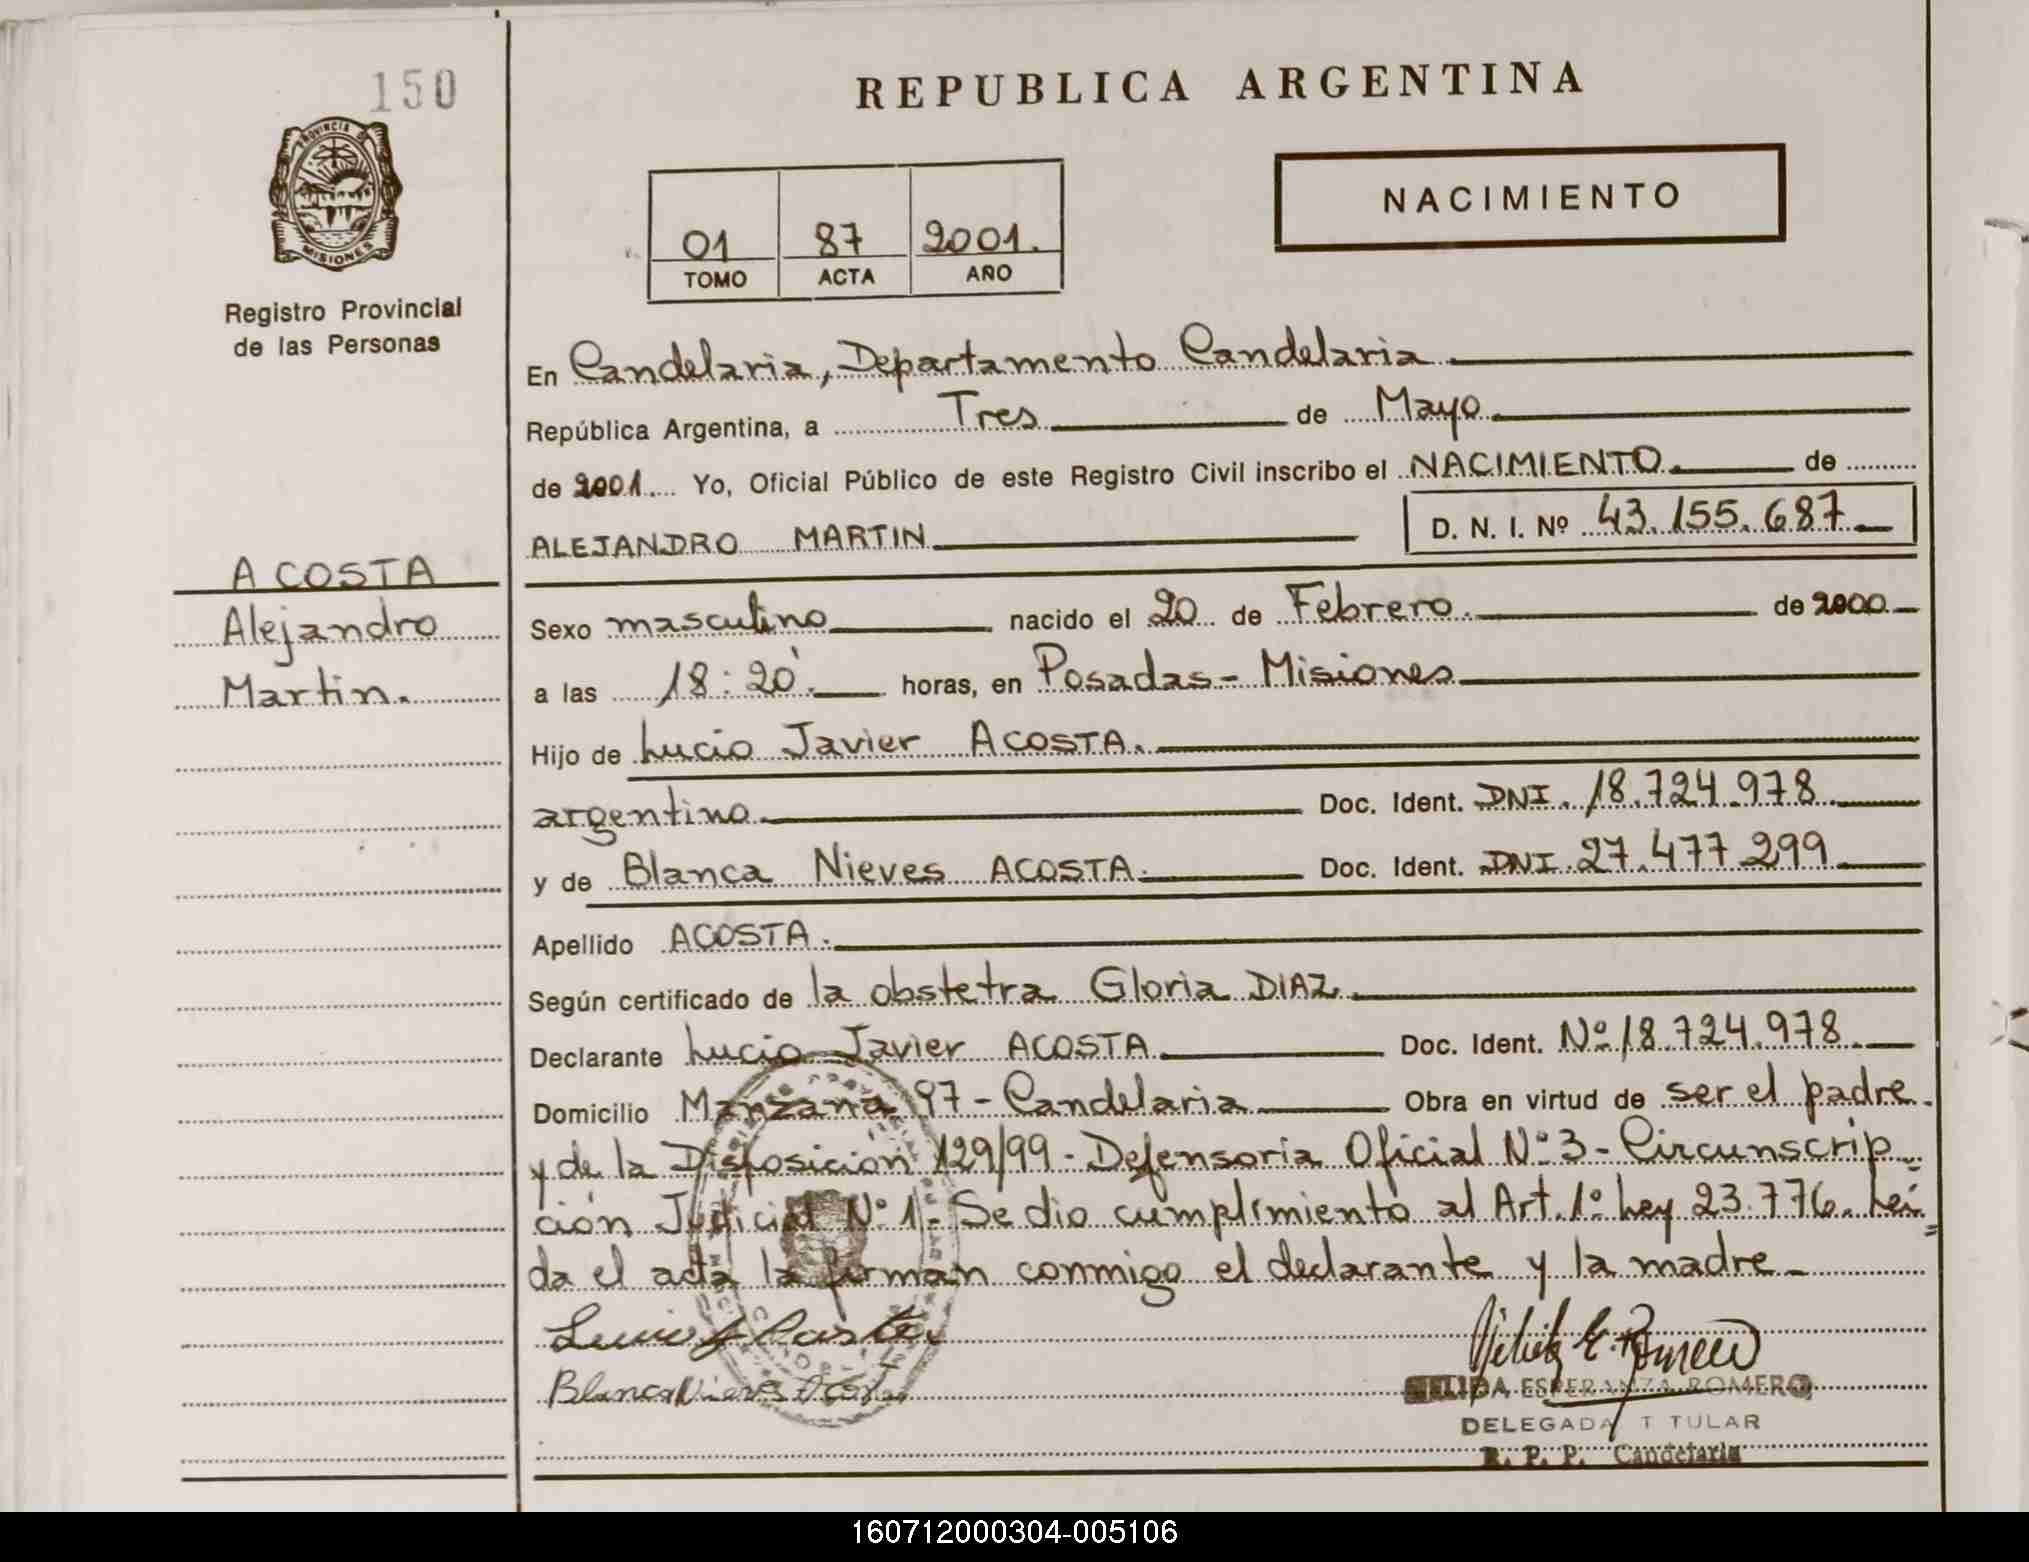 150
PROVINCIA DE
MISIONES
Registro Provincial
de las Personas
ACOSTA
Alejandro
Martin.
REPUBLICA ARGENTINA
NACIMIENTO
01 87 2001.
TOMO ACTA AÑO
En Candelaria, Departamento Candelaria
República Argentina, a Tres de Mayo
de 2001. Yo, Oficial Público de este Registro Civil inscribo el NACIMIENTO de
ALEJANDRO MARTIN D. N. I. Nº 43.155.687
Sexo masculino nacido el 20 de Febrero de 2000
a las 18:20' horas, en Posadas - Misiones
Hijo de Lucio Javier ACOSTA.
argentino Doc. Ident. DNI. 18.724.978
y de Blanca Nieves ACOSTA. Doc. Ident. DNI 27.477.299
Apellido ACOSTA.
Según certificado de la obstetra Gloria DIAZ
Declarante Lucio Javier ACOSTA Doc. Ident. Nº 18.724.978
Domicilio Manzana 97 - Candelaria Obra en virtud de ser el padre
y de la Disposicion 129/99 - Defensoria Oficial Nº 3 - Circunscrip-
ción Judicial Nº 1. Se dio cumplimiento al Art. 1º Ley 23.776. Leí=
da el acta la firman conmigo el declarante y la madre -
Blanca Nieves Acosta
ESPERANZA ROMERO
DELEGADA T TULAR
R. P. P. Candelaria
160712000304-005106